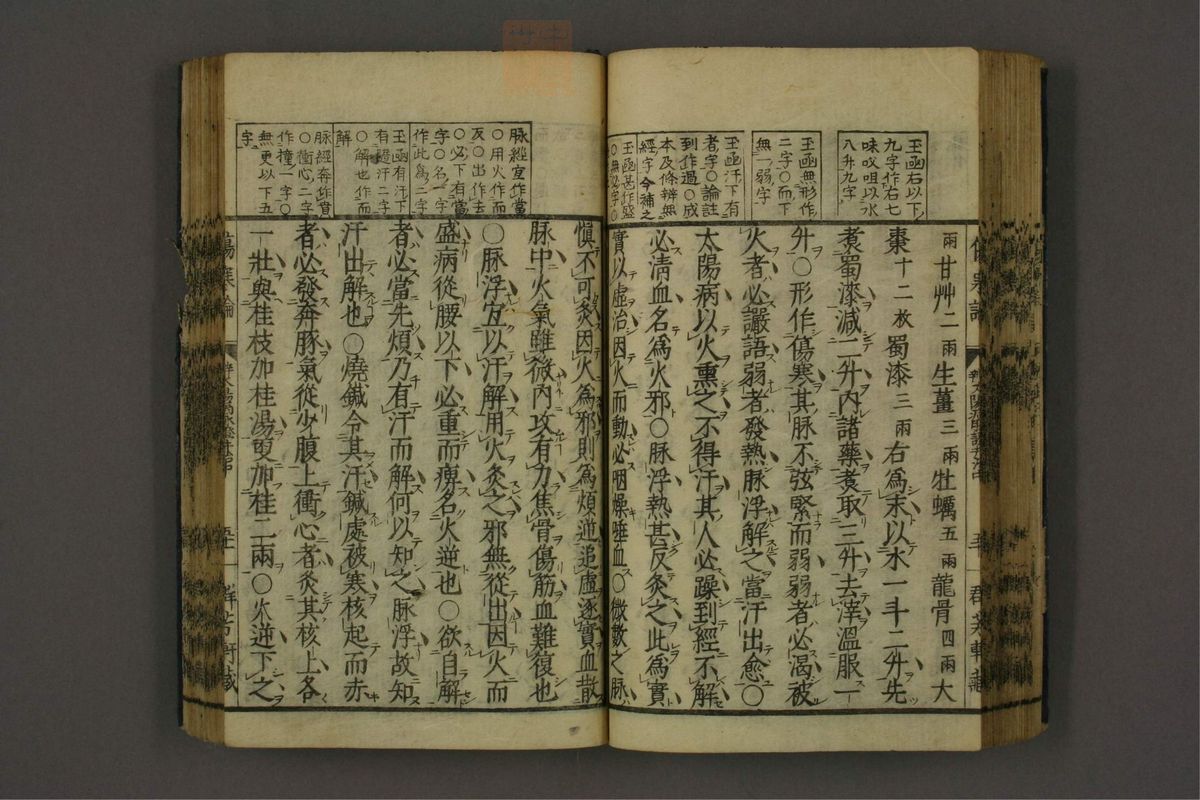 玉函右以下
九字作右七
味㕮咀以水
八升九字
玉函無形作
二字〇而下
無一弱字
玉函汗下有
者字〇論註
到作過〇成
本及條辨無
經字今補之
玉函甚作盛
〇無必字〇
兩甘艸二兩生薑三兩牡蠣五兩龍骨四兩大
棗十二枚蜀漆三兩右爲末以水一斗二升先
煑蜀漆減二升內諸藥煑取三升去滓溫服一
升〇形作傷寒其脉不弦緊而弱弱者必渴被
火者必讝語弱者發熱脉浮解之當汗出愈〇
太陽病以火熏之不得汗其人必躁到經不解
必淸血名爲火邪〇脉浮熱甚反灸之此爲實
實以虛治因火而動必咽燥唾血〇微數之脉
脉經宜作當
〇用火作而
反〇出作去
〇必下有當
字〇名一字
作此爲二字
玉函有汗下
有隨汗二字
〇解也作而
解
脉經奔作賁
〇衝心二字
作撞一字〇
無更以下五
字
愼不可灸因火爲邪則爲煩逆追虛逐實血散
脉中火氣雖微內攻有力焦骨傷筋血難復也
〇脉浮宜以汗解用火灸之邪無從出因火而
盛病從腰以下必重而痺名火逆也〇欲自解
者必當先煩乃有汗而解何以知之脉浮故知
汗出解也〇燒鍼令其汗鍼處被寒核起而赤
者必發奔豚氣從少腹上衝心者灸其核上各
一壯與桂枝加桂湯更加桂二兩〇火逆下之
傷寒論